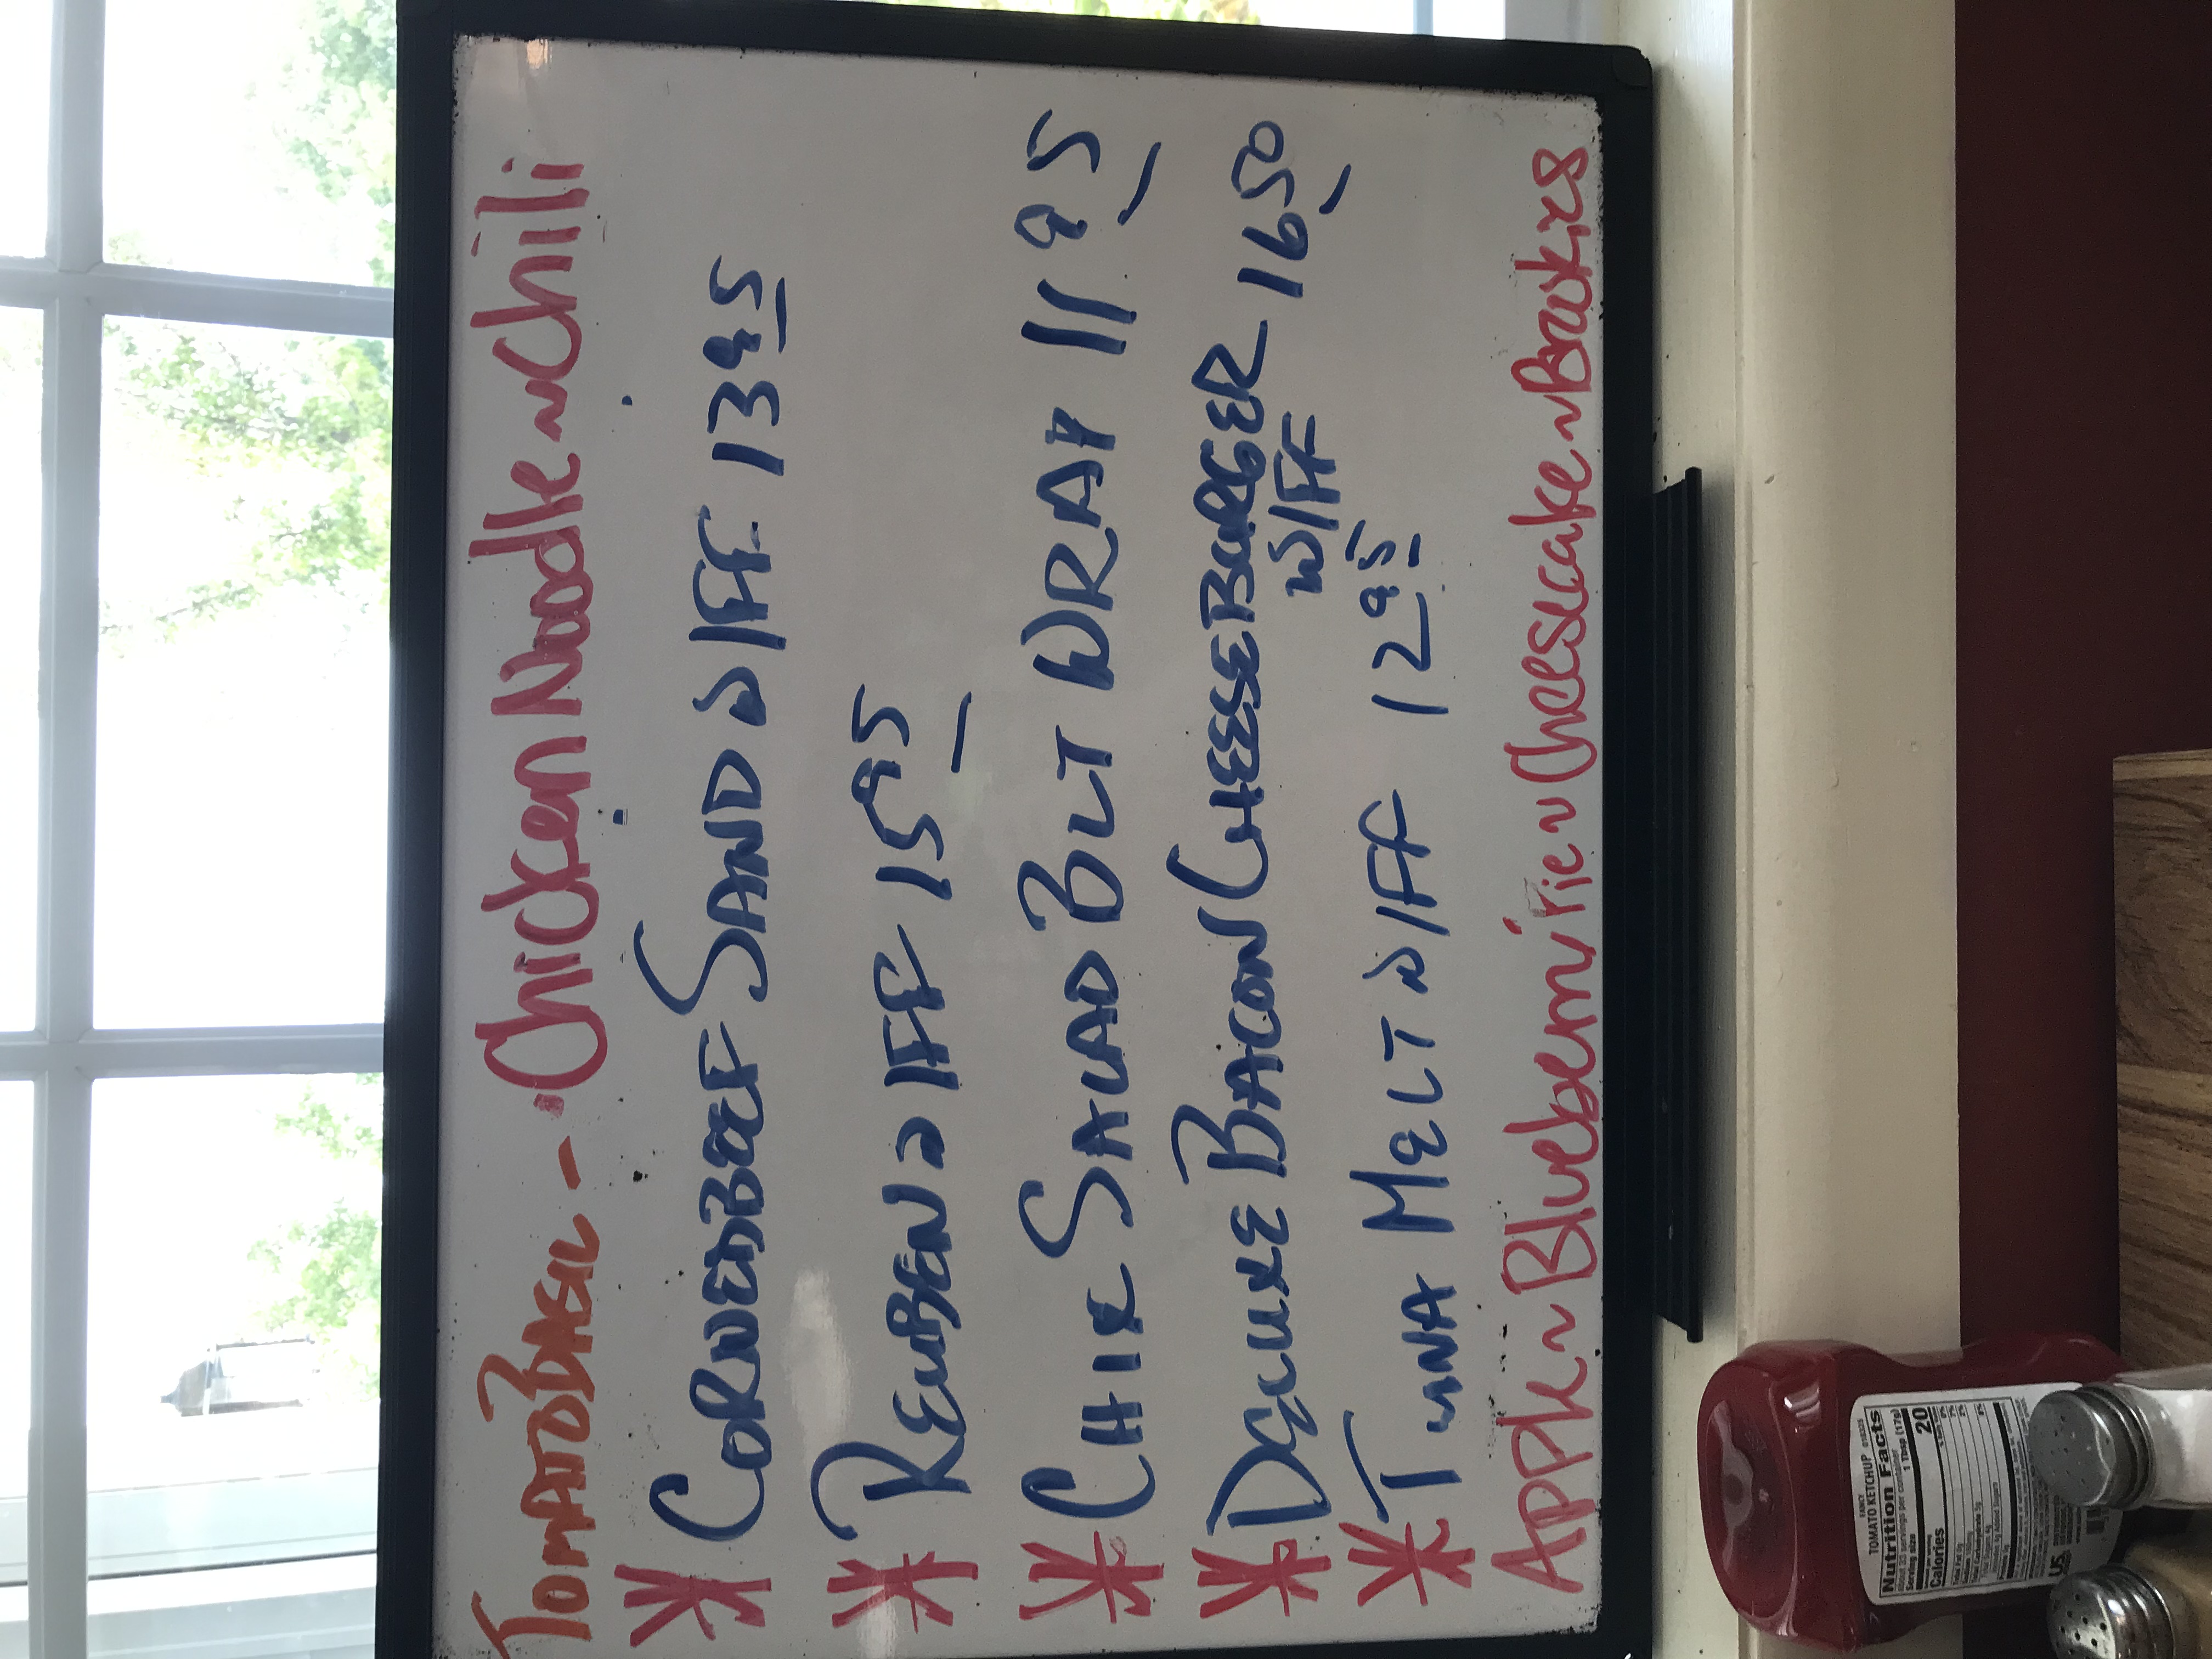 TOMATO BASIL - Chicken Noodle ~ Chili
* CORNEDBEEF SAND w/FF 13 95
* REUBEN w/FF 15 95
* CHIX SALAD BLT WRAP 11 95
* DELUXE BACON CHEESEBURGER 16 50
w/FF
* TUNA MELT w/FF 12 95
Apple ~ Blueberry Pie ~ Cheesecake ~ Brookies
FANCY
TOMATO KETCHUP
Nutrition Facts
1 Tbsp (17g)
Calories 20